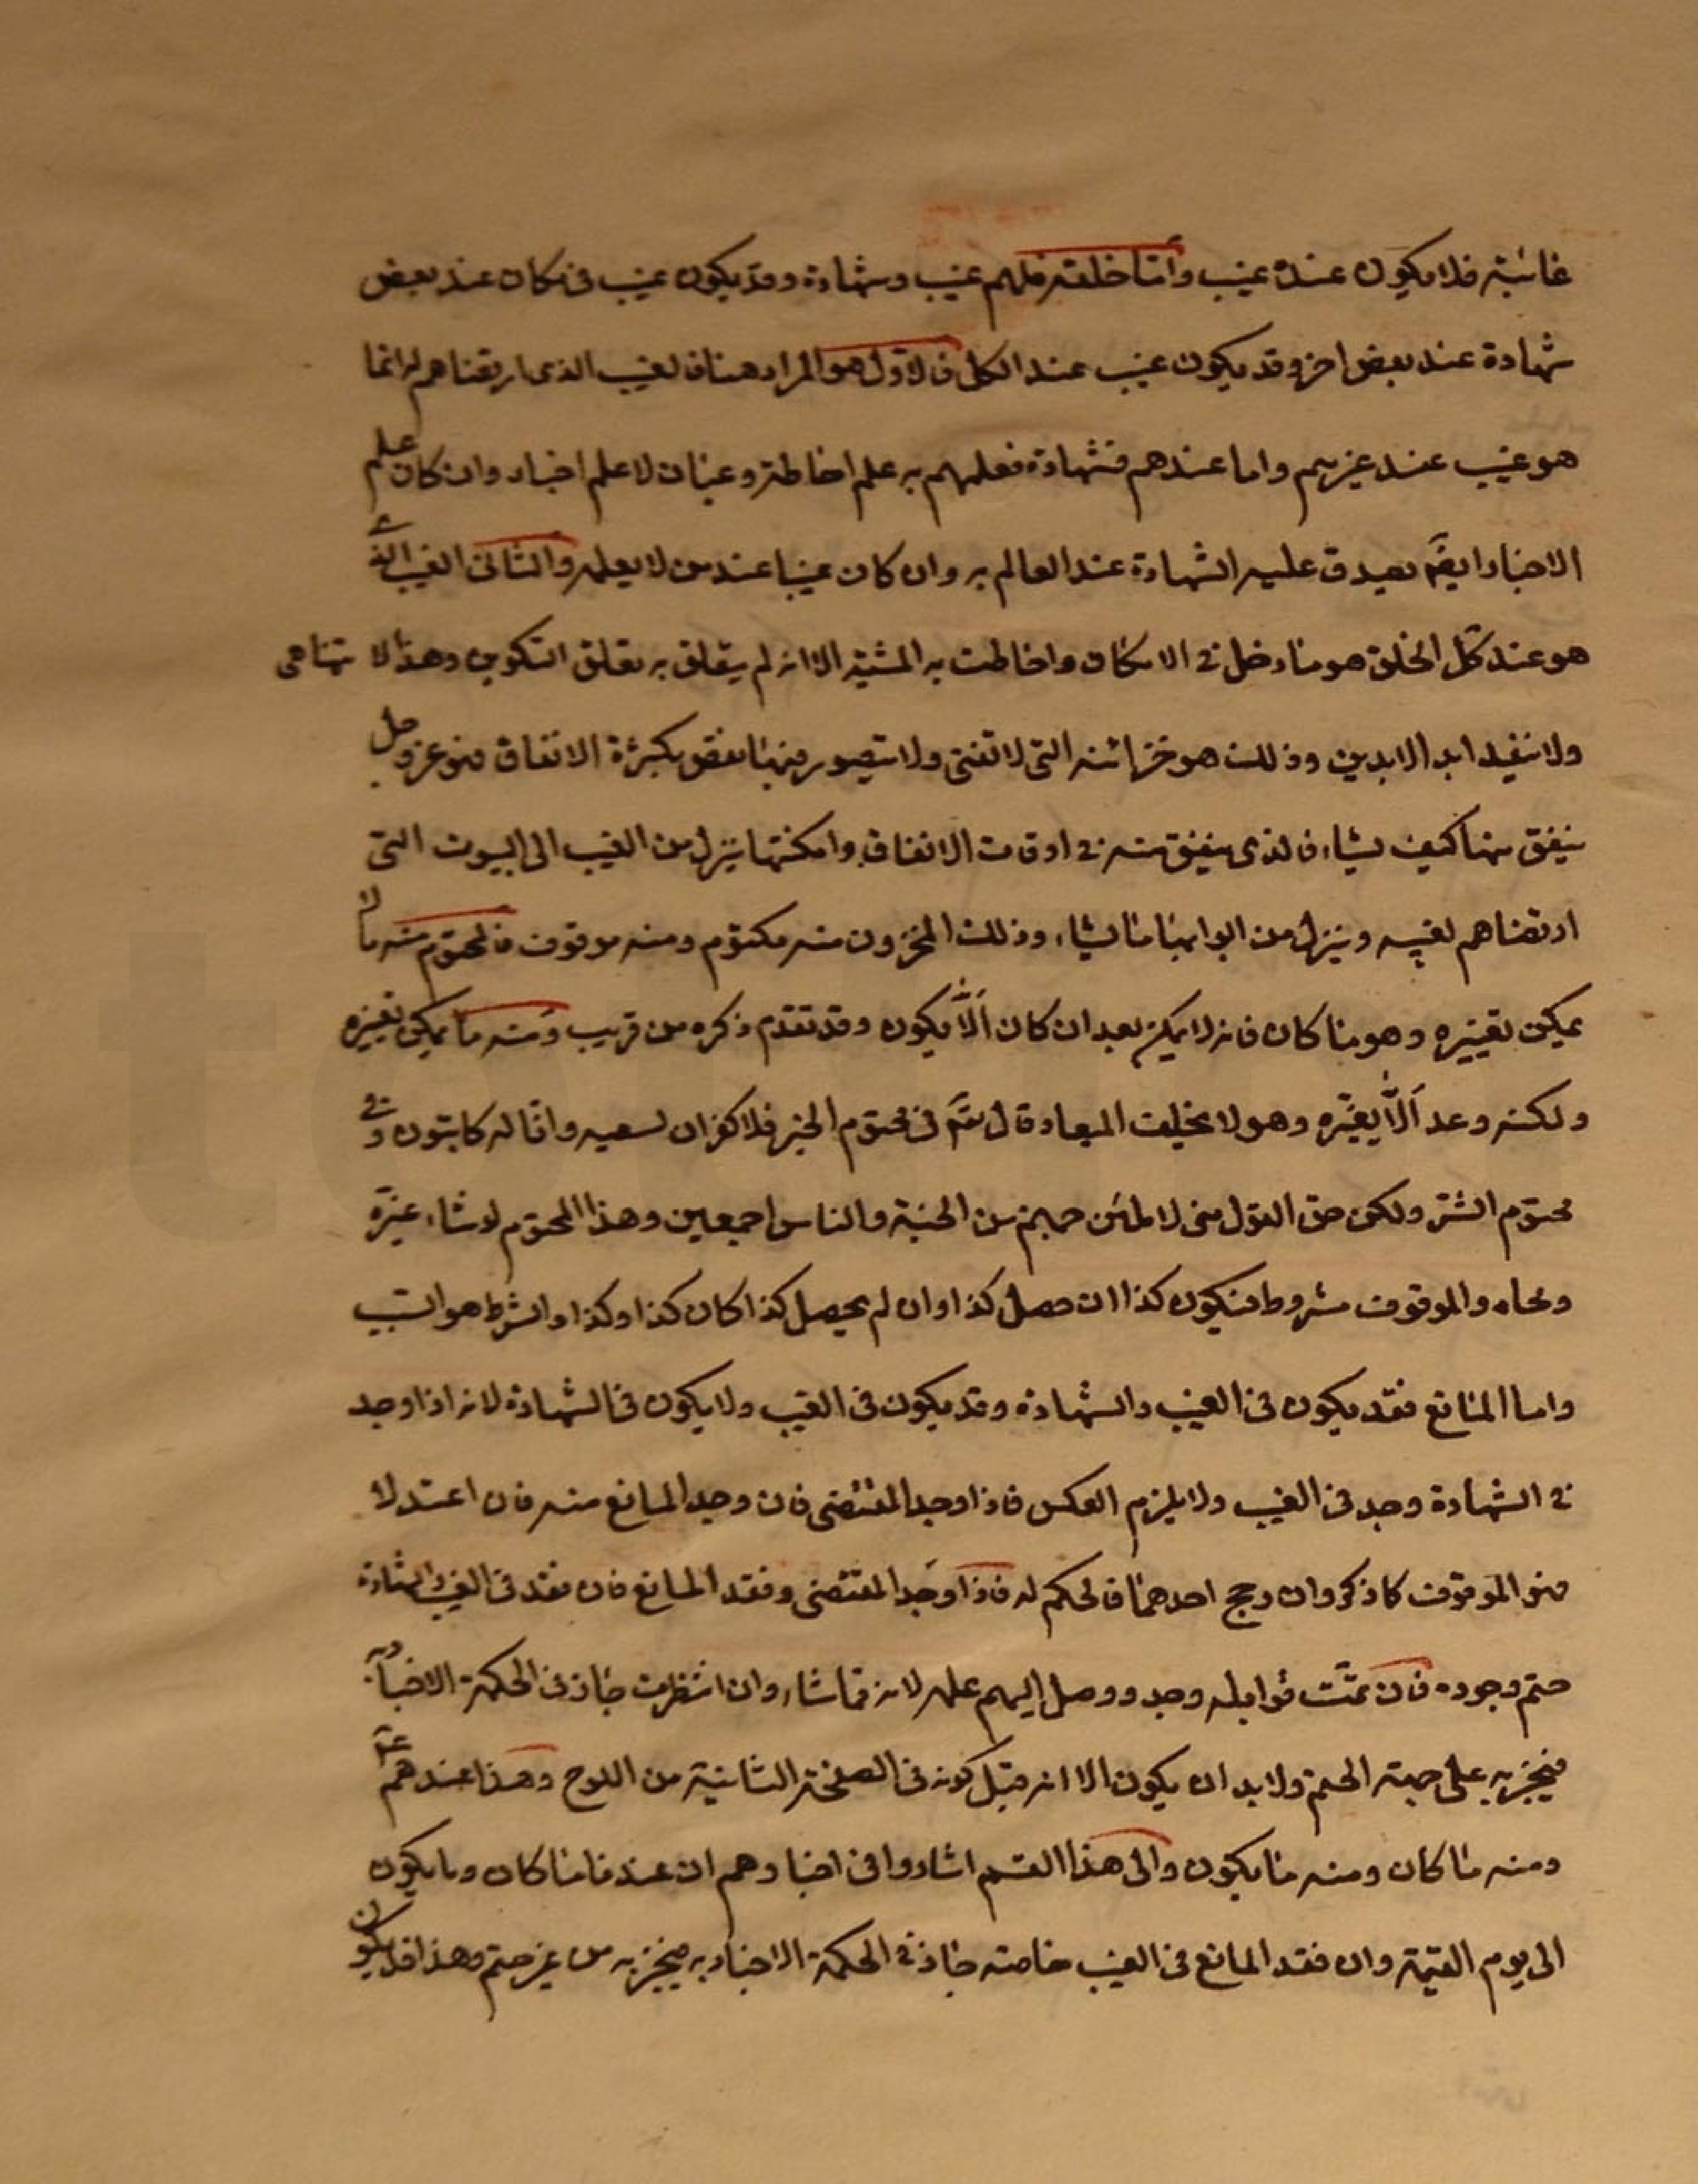 غائبة فلا يكون عنده غيب وأمّا خلقه فلهم غيب وشهادة وقد يكون غيب في مكان عند بعض
شهادة عند بعض اخر وقد يكون غيب عند الكل فالاوّل هو المراد هنا فالغيب الذى ارتضاهم له انما
هو غيب عند غيرهم واما عندهم فشهادة فعلمهم به علم احاطة وعيان لا علم اخبار وان كان علم
الاخبار ايضًا يصدق عليه الشهادة عند العالم به وان كان غيبا عند من لا يعلمه والثانى الغيب الذى
هو عند كل الخلق هو ما دخل في الامكان واحاطت به المشية الا انه لم يتعلق به تعلق التكوين وهذا لا يتناهى
ولا ينفد ابد الابدين وذلك هو خزائنه التى لا تفنى ولا يتصور فيها نقص بكثرة الانفاق فهو عز وجل
ينفق منها كيف يشاء فالذى ينفق منه في اوقات الانفاق وامكنتها ينزل من الغيب الى البيوت التى
ارتضاهم لغيبه وينزل من ابوابها ما يشاء وذلك المخزون منه مكتوم ومنه موقوف فالمحتوم منه ما لا
يمكن تغييره وهو ما كان فانه لا يمكن بعد ان كان الّا يكون وقد تقدم ذكره من قريب ومنه ما يمكن تغييره
ولكنه وعد الّا يغيّره وهو لا يخلف الميعاد قال تعالى في محتوم الخير فلا كفران لسعيه وانّا له كاتبون وفي
محتوم الشر ولكن حق القول منى لاملئن جهنم من الجنة والناس اجمعين وهذا المحتوم لو شاء غيّره
ومحاه والموقوف مشروط فيكون كذا ان حصل كذا وان لم يحصل كذا كان كذا وكذا والشرط هو السبب
واما المانع فقد يكون في الغيب والشهادة وقد يكون في الغيب ولا يكون في الشهادة لانه اذا وجد
في الشهادة وجد في الغيب ولا يلزم العكس فاذا وجد المقتضى فان وجد المانع منه فان اعتدلا
فهو الموقوف كما ذكر وان رجح احدهما فالحكم له فاذا وجد المقتضى وفقد المانع فان فقد في الغيب والشهادة
حتم وجوده فان تمّت قوابله وجد ووصل اليهم علمه لانه مما شاء وان انتظرت جاز في الحكمة الاخبار به
فيخبر به على جهة الحتم ولا بد ان يكون الا انه قبل كونه في الصفحة الثانية من اللوح وهذا عندهم ع
ومنه ما كان ومنه ما يكون والى هذا القسم اشاروا في اخبارهم ان عندنا ما كان وما يكون
الى يوم القيمة وان فقد المانع في الغيب خاصة جاز في الحكمة الاخبار به فيخبر به من غير حتم وهذا قد يكون